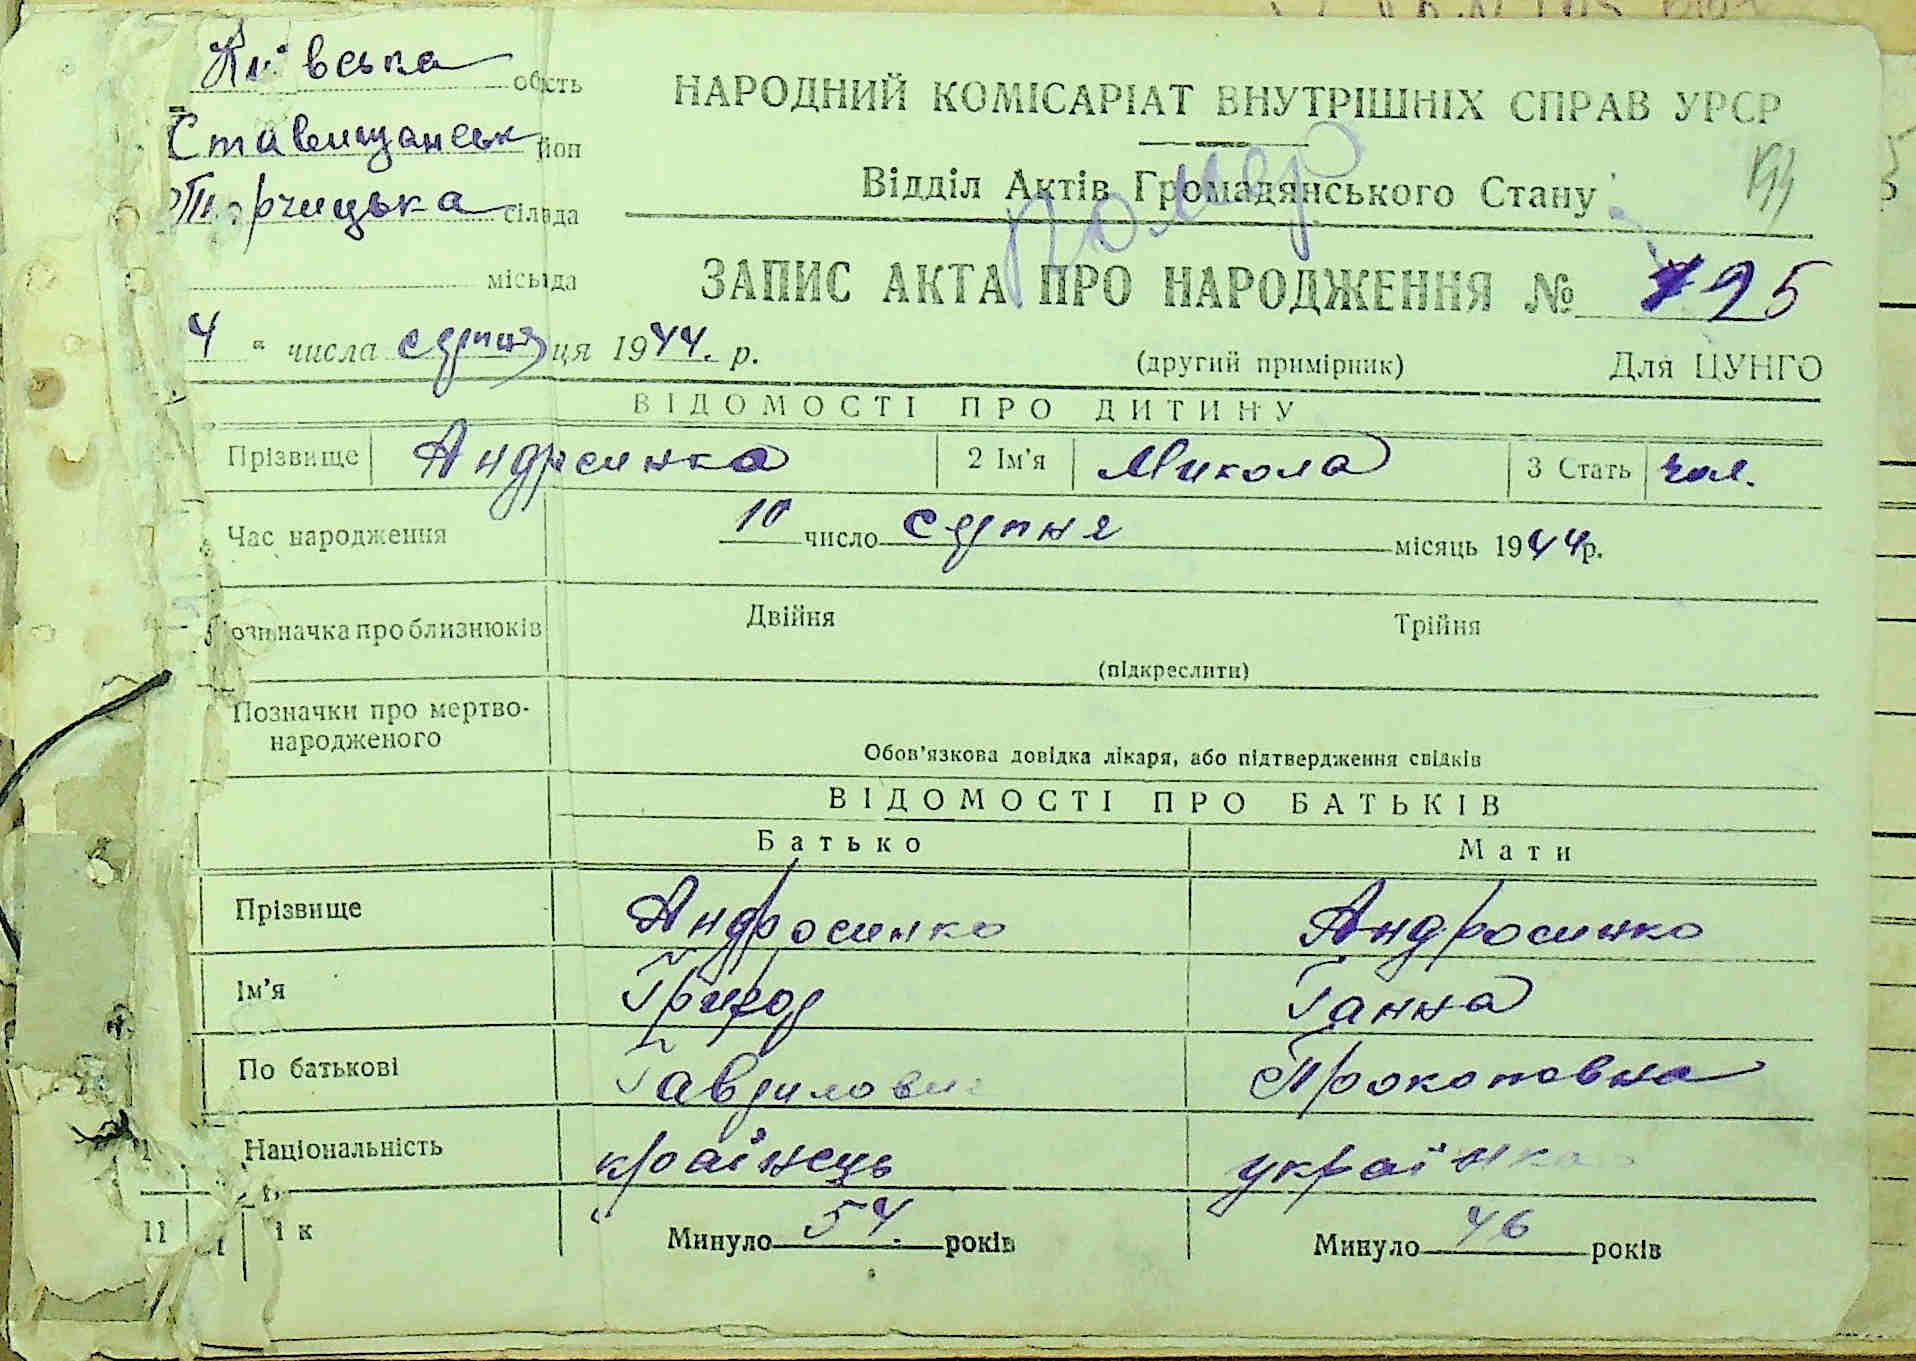 Київська обість
Ставищанськ йон
Торчицька сілада
місьіда
НАРОДНИЙ КОМІСАРІАТ ВНУТРІШНІХ СПРАВ УРСР
Відділ Актів Громадянського Стану
помер
ЗАПИС АКТА ПРО НАРОДЖЕННЯ № 25
4 " числа серпня ця 1944. р.
(другий примірник) Для ЦУНГО
ВІДОМОСТІ ПРО ДИТИНУ
Прізвище Андрсинка 2 Ім'я Микола 3 Стать чол.
Час народження 10 число серпня місяць 1944р.
означка про близнюків Двійня Трійня
(підкреслити)
Позначки про мертво-
народженого
Обов'язкова довідка лікаря, або підтвердження свідків
ВІДОМОСТІ ПРО БАТЬКІВ
Батько Мати
Прізвище Андросинко Андросинко
Ім'я Григор Ганна
По батькові Гаврилови Прокоповна
Національність країнець українка
11 і к Минуло 54 років Минуло 46 років